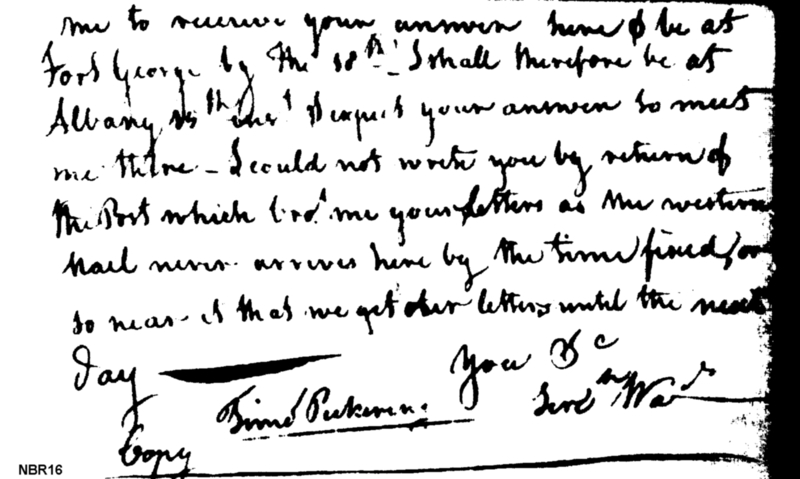 me to receive your answer here & be at
Fort George by the 18th. I shall therefore be at
Albany 15th inst & expect your answer to meet
me there - I could not write you by return of
the Post which bro't me your letters as the western
Mail never arrives here by the time fixed, or
so near it that we get our letters until the next
day
Your &c
Tim Pickering
Copy
NBR16